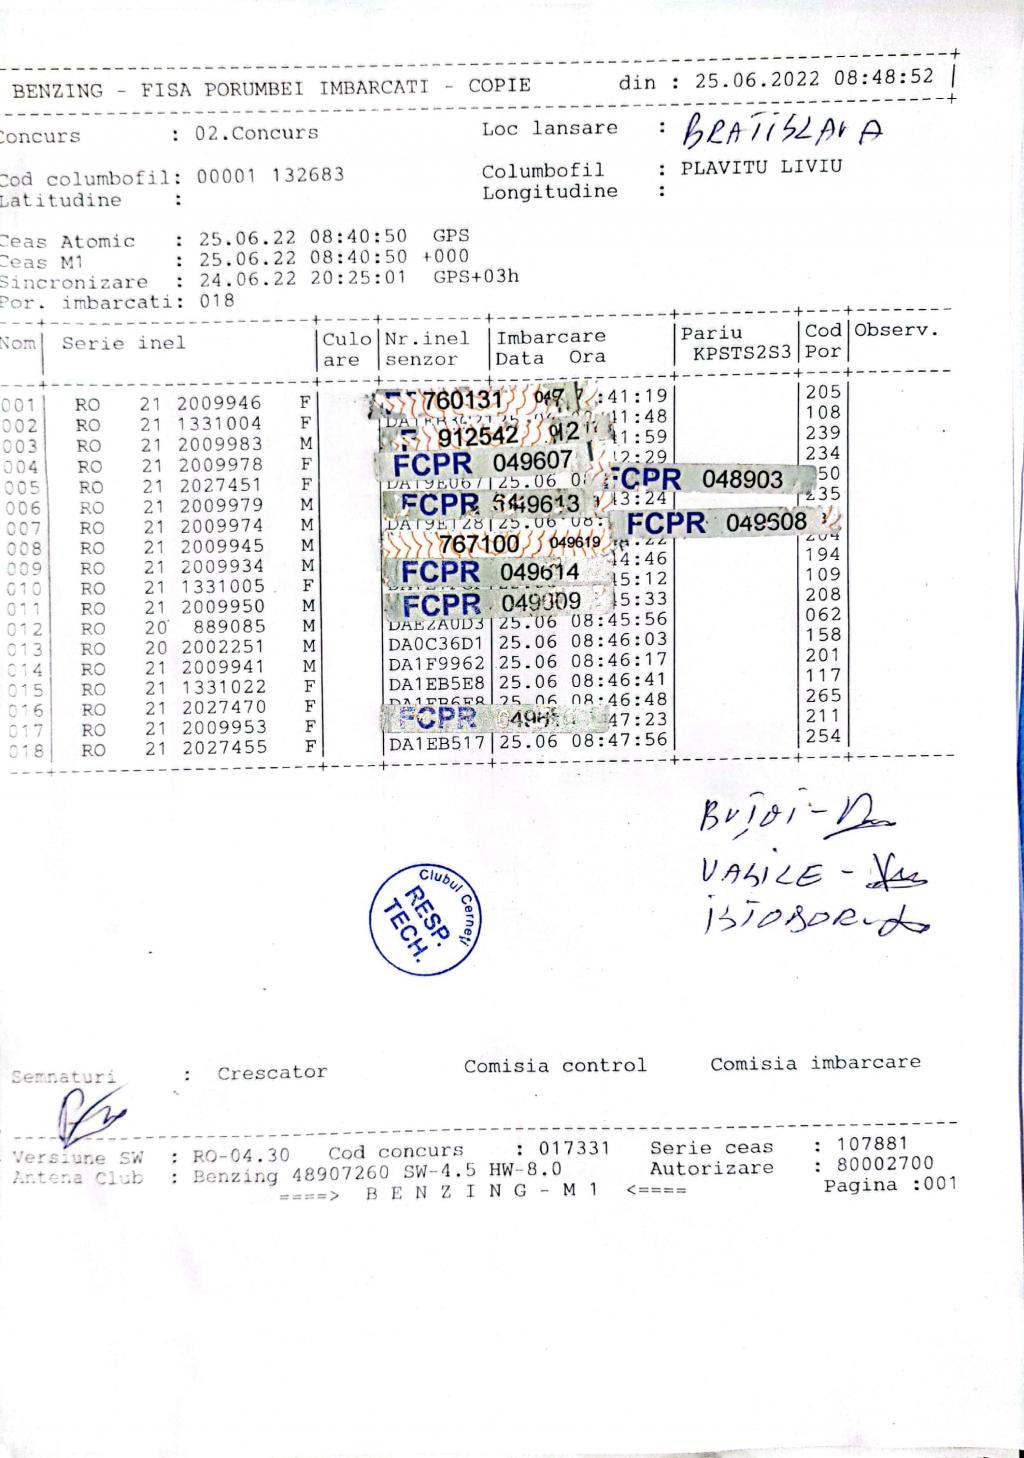 BENZING - FISA PORUMBEI IMBARCATI - COPIE din : 25.06.2022 08:48:52
Concurs : 02.Concurs Loc lansare : BRATISLAVA
Cod columbofil: 00001 132683 Columbofil : PLAVITU LIVIU
Latitudine : Longitudine :
Ceas Atomic : 25.06.22 08:40:50 GPS
Ceas M1 : 25.06.22 08:40:50 +000
Sincronizare : 24.06.22 20:25:01 GPS+03h
Por. imbarcati: 018
Nom Serie inel Culo Nr.inel Imbarcare Pariu Cod Observ.
are senzor Data Ora KPSTS2S3 Por
001 RO 21 2009946 F 760131 :41:19 205
002 RO 21 1331004 F 41:48 108
003 RO 21 2009983 M 912542 41:59 239
004 RO 21 2009978 F FCPR 049607 :29 234
005 RO 21 2027451 F 25.06 FCPR 048903 50
006 RO 21 2009979 M FCPR 13:24 235
007 RO 21 2009974 M 25.06 08: FCPR 049508
008 RO 21 2009945 M 767100 049619
009 RO 21 2009934 M FCPR 049614 14:46 194
010 RO 21 1331005 F 45:12 109
011 RO 21 2009950 M FCPR 45:33 208
012 RO 20 889085 M DAE2A0D3 25.06 08:45:56 062
013 RO 20 2002251 M DA0C36D1 25.06 08:46:03 158
014 RO 21 2009941 M DA1F9962 25.06 08:46:17 201
015 RO 21 1331022 F DA1EB5E8 25.06 08:46:41 117
016 RO 21 2027470 F 25.06 08:46:48 265
017 RO 21 2009953 F FCPR 47:23 211
018 RO 21 2027455 F DA1EB517 25.06 08:47:56 254
BUȚOI -
VASILE -
ISTOBOR -
Clubul Cerneți
RESP.
TECH.
Semnaturi : Crescator Comisia control Comisia imbarcare
Versiune SW : RO-04.30 Cod concurs : 017331 Serie ceas : 107881
Antena Club : Benzing 48907260 SW-4.5 HW-8.0 Autorizare : 80002700
====> B E N Z I N G - M 1 <==== Pagina :001